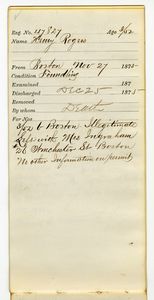 Reg. No. 117827 Age 3/52
Name Henry Rogers
From Boston Nov 27 1875
Condition Foundling
Examined 187
Discharged DEC 25 1875
Removed
By whom Death
For Nos.
3/52 b Boston Illegitimate
Left with Mrs Ingraham
26 Winchester St Boston
No other Information on permit